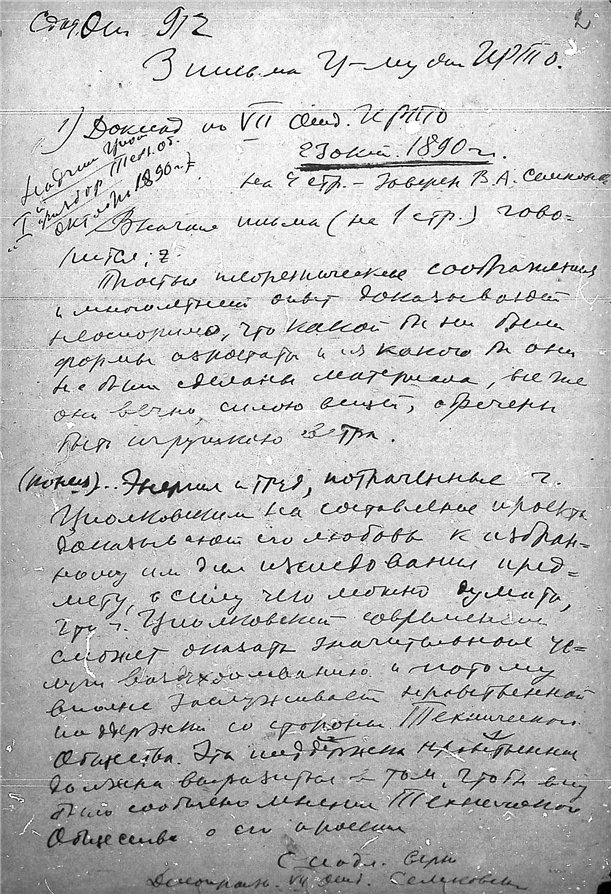 2
3 письма Ц-му от ИРТО.
1) Доклад по VII Отд. ИРТО
1890 г.
на 4 стр. – Заверен В.А. Семковск
октябрь 1890 г.
Вначале письма (на 1 стр.) гово-
рится:
Простые теоретические соображения
и многолетний опыт доказывают
неоспоримо, что какой бы ни были
формы аэростаты и из какого бы они
не были сделаны материала, все же
они вечно, силою вещей, обречены
быть игрушкою ветра.
(конец).. Энергия и труд, потраченные г.
Циолковским на составление проекта
доказывают его любовь к избран-
ному им для исследования пред-
мету, в силу чего можно думать,
что г. Циолковский современем
сможет оказать значительные ус-
луги воздухоплаванию и потому
вполне заслуживает нравственной
поддержки со стороны Технического
Общества. Эта поддержка нравственная
должна выразиться в том, чтобы ему
было сообщено мнение Технического
Общества о его проекте
С подл. верно
Делопроизв. VII Отд. Семковский